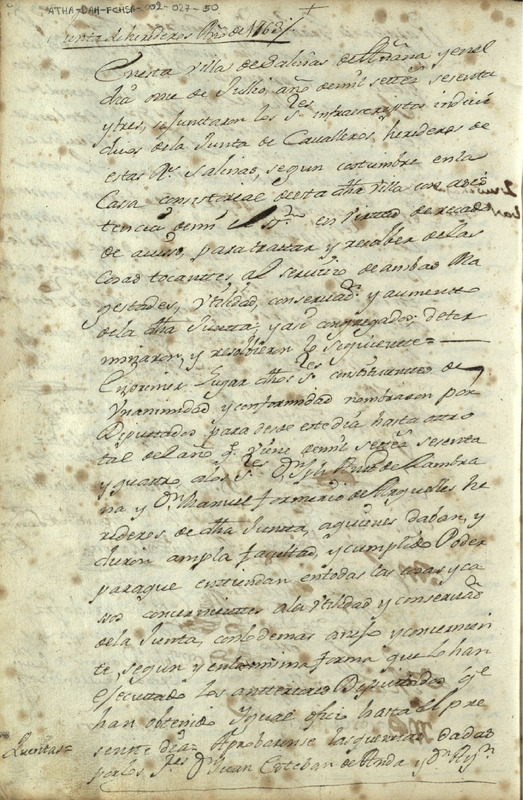 ATHA-DAH-FCHSA-002-027-50
Junta de herederos Año de 1763
En esta Villa de Salinas de Añana y en el
dia once de Jullio, año de mil settos sesenta
y tres, se juntaron los Sres infraescriptos indivi
duos de la Junta de Cavalleros herederos de
estas Rs Salinas, segun costumbre en la
Casa consistorial de esta dha Villa con asis
tencia de mi el ssno en virtud de recado
de aviso, para tratar y resolber de las
cosas tocantes al servicio de ambas Ma
gestades, vtilidad, conservazn y aumento
de la dha Junta, y asi congregados deter
minaron, y resolbieron lo siguiente=
En primer lugar dhos Sres constituientes de
Vnanimidad y conformidad nombraron por
Diputados para desde este dia hasta otro
tal de el año q viene de mil settos sesenta
y quatro, a los Sres Dn Jph Ruiz de Zambra
na y Dn Manuel Formerio de Arguelles he
rederos de dha Junta, a quienes daban, y
dieron ampla facultad, y cumplido Poder
para que entiendan en todas las cosas y ca
sos concernientes a la vtilidad y conservazn
de la Junta, con lo demas anejo y concernien
te, segun y en la misma forma que lo han
ejecutado los anteriores Diputados qe
han obtenido Ygual oficio hasta el pre
sente dia= Aprobaronse las quentas dadas
por los Sres Dn Juan Esteban de Anda y Dn
Quentas=